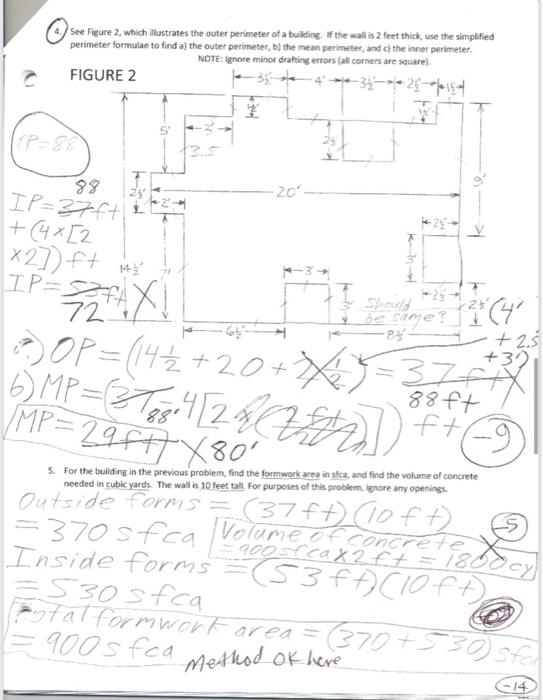 4. See Figure 2, which illustrates the outer perimeter of a building. If the wall is 2 feet thick, use the simplified
perimeter formulae to find a) the outer perimeter, b) the mean perimeter, and c) the inner perimeter.
NOTE: Ignore minor drafting errors (all corners are square).
FIGURE 2
3½' 4' 3½' 2½' 1½'
5' 3' 2½'
3.5
OP=88
9'
88
2½' 2' 20'
IP=37ft
+(4×[2
×2])ft
2½'
3'
14½' 3
IP=53ft X
72
Should
be same?
3' 2½' 2½'
6½' 8½'
(4'
+2.5
+3')
a) OP=(14½+20+ ½)=37ft X
88ft
b) MP=(37 4[2 (2ft)])ft
88'
-9
MP=29ft X 80'
5. For the building in the previous problem, find the formwork area in sfca, and find the volume of concrete
needed in cubic yards. The wall is 10 feet tall. For purposes of this problem, ignore any openings.
Outside forms = (37ft)(10ft)
-5
=370sfca Volume of concrete X
=900sfca×2ft=1800cy
Inside forms =(53ft)(10ft)
=530sfca
Total formwork area=(370+530)sfca
=900sfca
Method OK here
-14